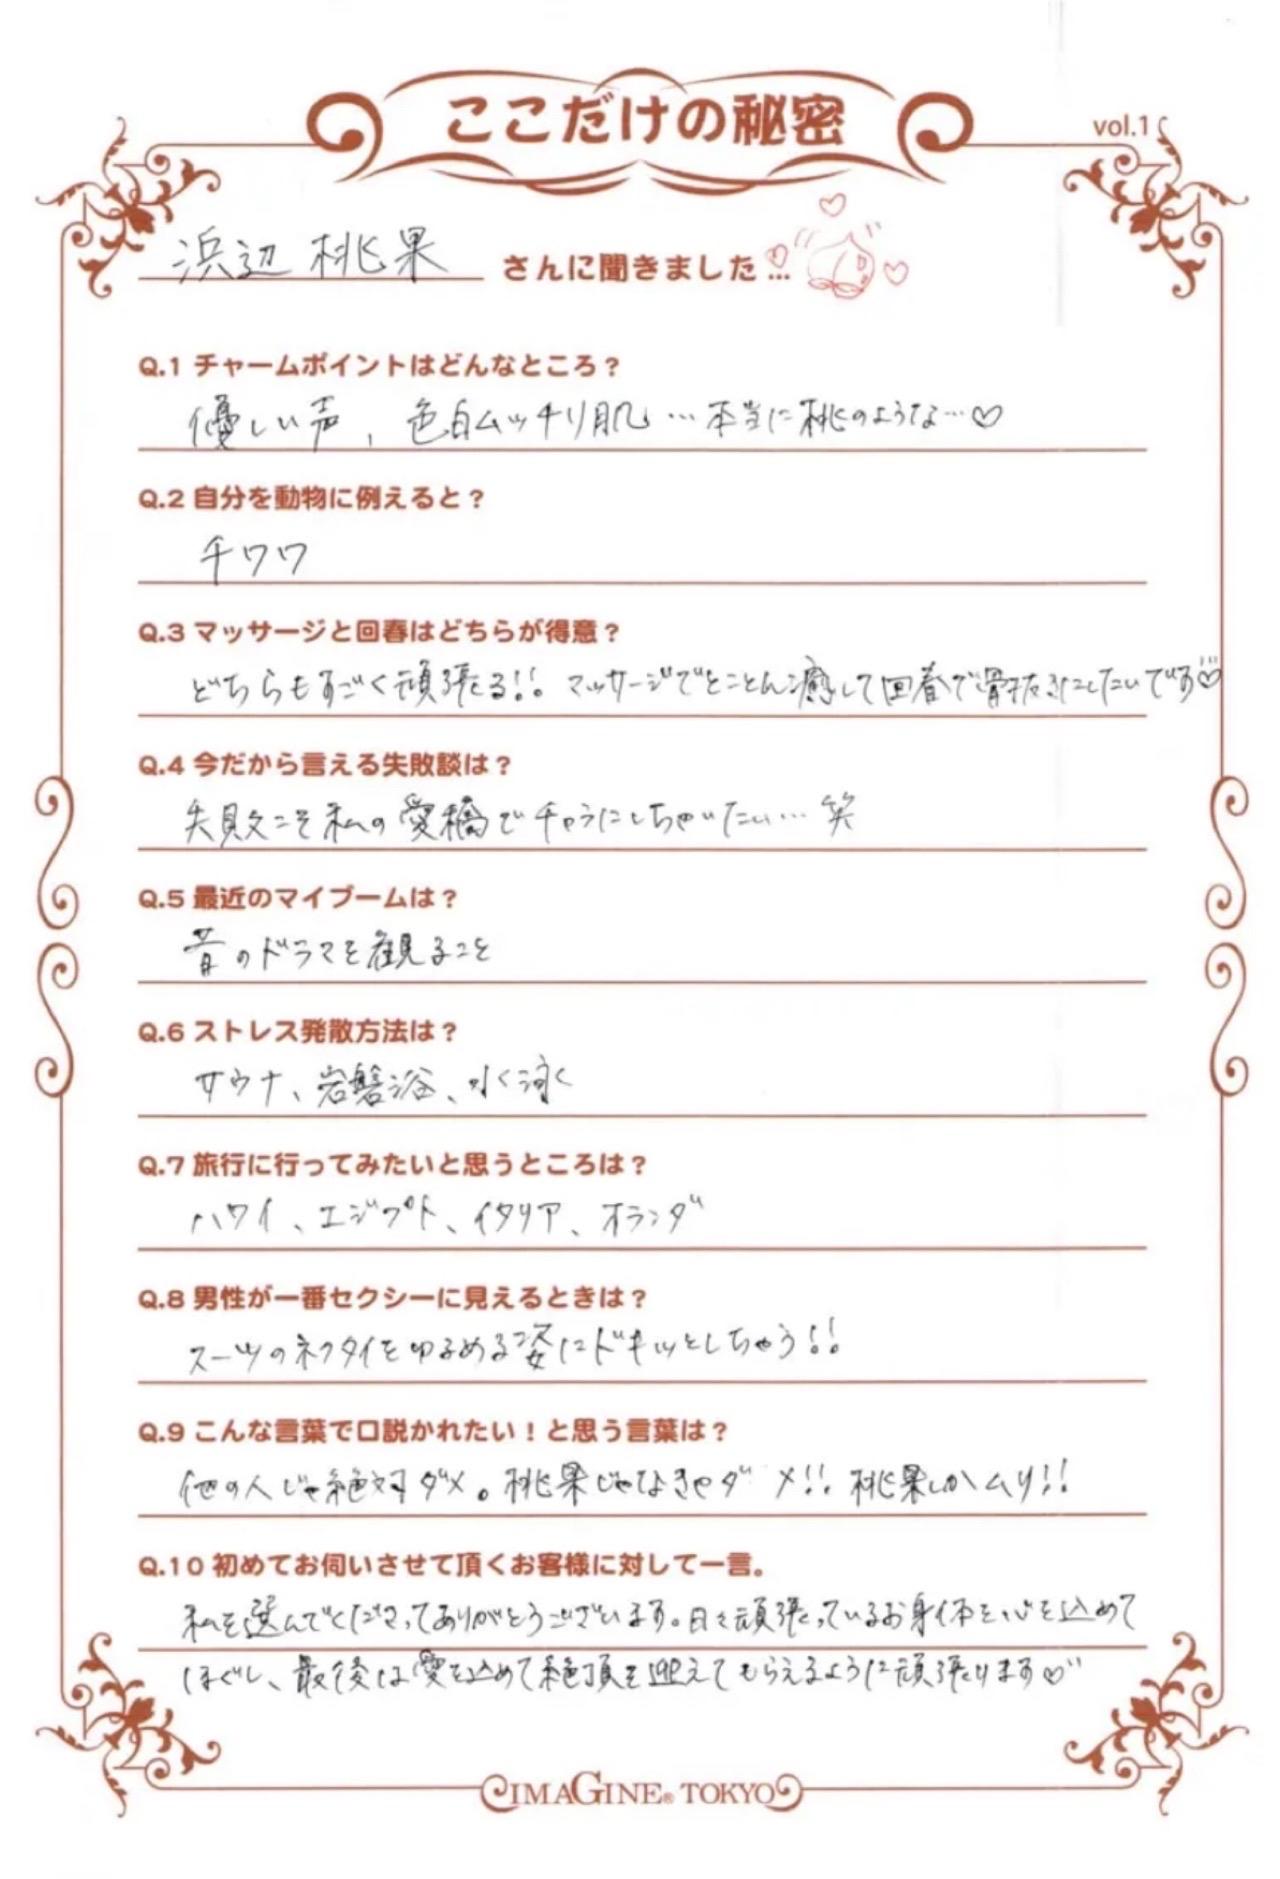 ここだけの秘密
vol.1
浜辺 桃果 さんに聞きました…
Q.1 チャームポイントはどんなところ？
優しい声、色白ムッチリ肌…本当に桃のような…♡
Q.2 自分を動物に例えると？
チワワ
Q.3 マッサージと回春はどちらが得意？
どちらもすごく頑張る!!。マッサージでとことん癒して回春で骨抜きにしたいです♡
Q.4 今だから言える失敗談は？
失敗こそ私の愛嬌でチャラにしちゃいたい…笑
Q.5 最近のマイブームは？
昔のドラマを観ること
Q.6 ストレス発散方法は？
サウナ、岩盤浴、水く泳く
Q.7 旅行に行ってみたいと思うところは？
ハワイ、エジプト、イタリア、オランダ
Q.8 男性が一番セクシーに見えるときは？
スーツのネクタイをゆるめる姿にドキッとしちゃう!!
Q.9 こんな言葉で口説かれたい！と思う言葉は？
他の人じゃ絶対ダメ。桃果じゃなきゃダメ!!桃果しかムリ!!
Q.10 初めてお伺いさせて頂くお客様に対して一言。
私を選んでくださってありがとうございます。日々頑張っているお身体を心を込めて
ほぐし、最後は愛を込めて絶頂を迎えてもらえるように頑張ります♡
IMAGINE® TOKYO